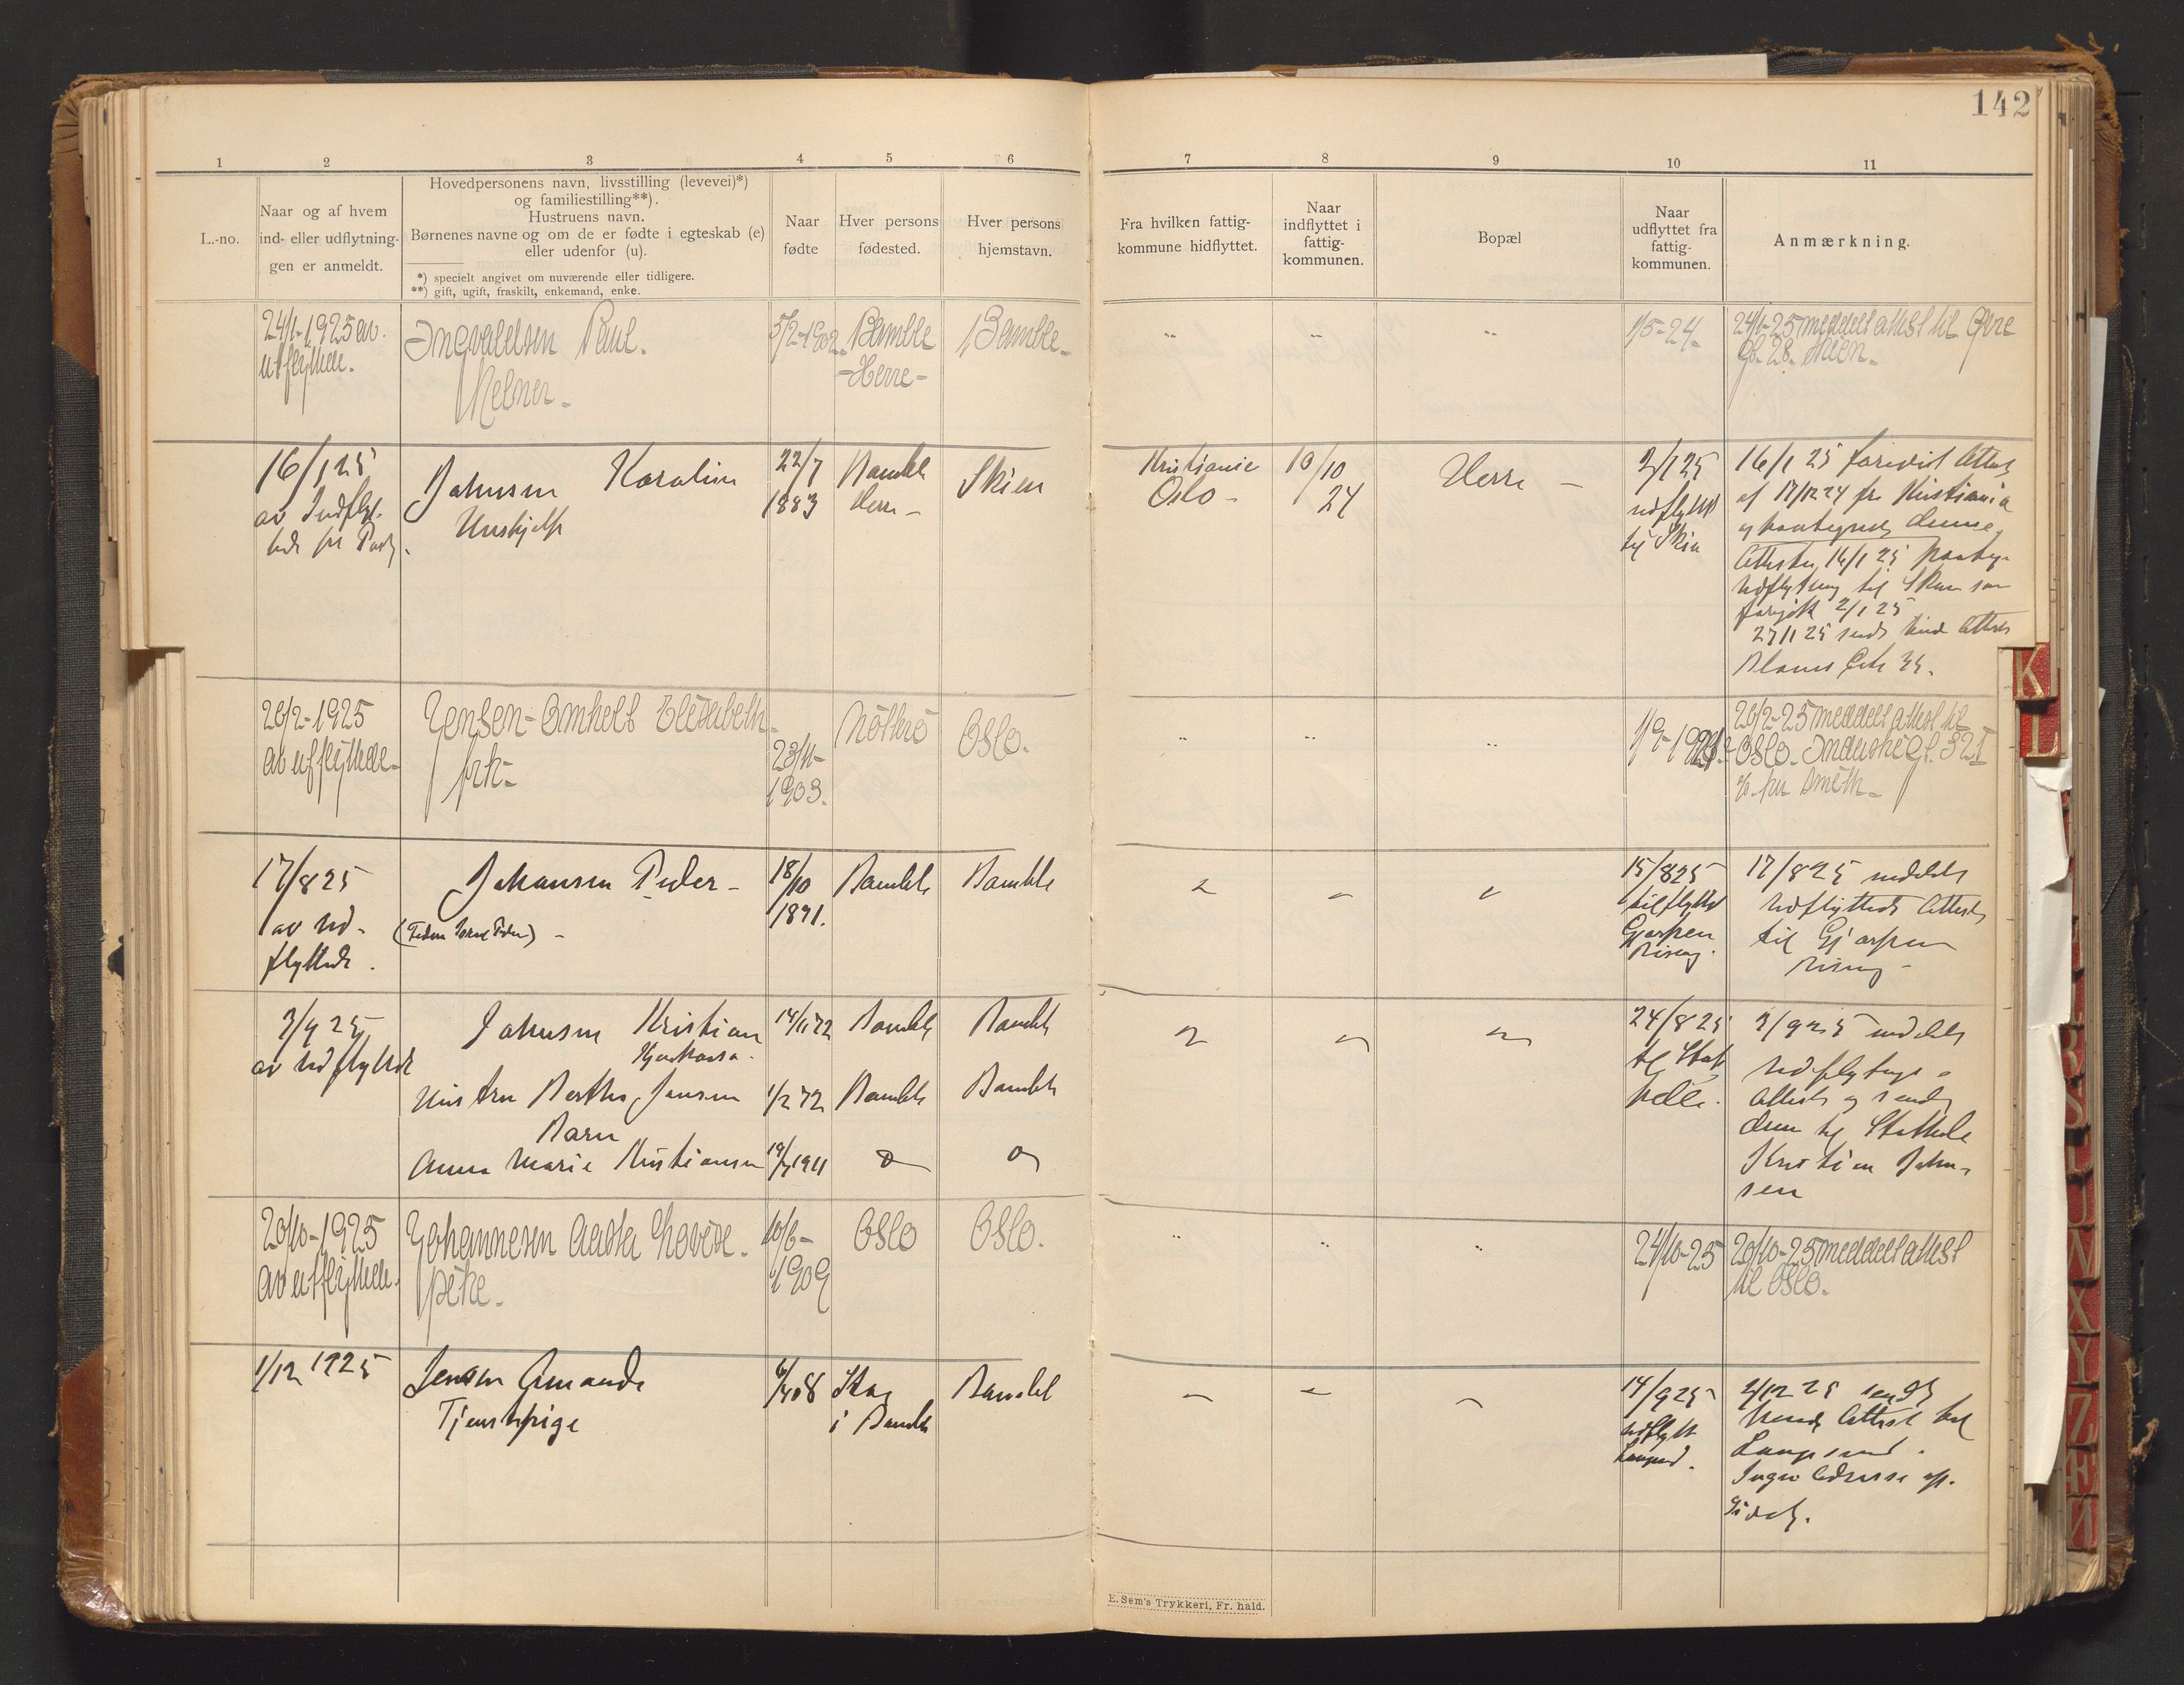 142
1 2 3 4 5 6 7 8 9 10 11
L.-no.
Naar og af hvem
ind- eller udflytnin-
gen er anmeldt.
Hovedpersonens navn, livsstilling (levevei)*)
og familiestilling**).
Hustruens navn.
Børnenes navne og om de er fødte i egteskab (e)
eller udenfor (u).
*) specielt angivet om nuværende eller tidligere.
**) gift, ugift, fraskilt, enkemand, enke.
Naar
fødte
Hver persons
fødested.
Hver persons
hjemstavn.
Fra hvilken fattig-
kommune hidflyttet.
Naar
indflyttet i
fattig-
kommunen.
Bopæl
Naar
udflyttet fra
fattig-
kommunen.
Anmærkning.
24/1-1925 av
utflyttede.
Ingvaldsen Paul.
Kelner-
5/2-1902
Bamble
-Herre-
Bamble-
"
"
"
1/5-24-
24/1-25 meddelt attest til Øvre
28- Skien-
16/1 25
av Indflyt-
tede pr
Johnsen Karoline
Hushjelp
22/7
1883
Bamble
Herre-
Skien
Kristiania
Oslo-
10/10
24
Herre -
2/1 25
udflyttet
til Skien
16/1 25 forevist Attest
af 17/12 24 fra Kristiania
og paategnet denne.
Attesten 16/1 25
Udflytning til Skien som
foregik 2/1 25
27/1 25 sendt hende Attest
26/2-1925
av utflyttede-
Jensen- Elisabeth-
frk-
23/11-
1903.
Nøtterø
Oslo.
"
"
"
1/9-1924-
26/2-25 meddelt attest til
Oslo- Industrigt. 32 I
c/o fru Smeth-
17/8 25
av ud-
flyttede.
Johansen Peder-
18/10
1891.
Bamble
Bamble
15/8 25
tilflyttet
Gjerpen
Rising.
17/8 25 meddelt
Udflyttede Attest
til Gjerpen
Rising-
3/9 25
av Udflyttede
Johnsen Kristian
14/11 72
Bamble
Bamble
Hustru Berthe Jensen
1/2 72
Bamble
Bamble
Barn
Anna Marie Kristiansen
1911
24/8 25
til Stat-
helle.
3/9 25 meddelt
Udflytnings-
Attest og sendt
dem til Stathelle
Kristian John-
sen
20/10-1925
av utflyttede.
Johannesen Aasta Lovise-
pike-
10/6-
1909
Oslo
Oslo.
"
"
"
24/10-25
20/10-25 meddelt attest
til Oslo.
1/12 1925
Jensen Amanda
Tjenstpige
i Bamble
Bamble
14/9 25
udflytt
Langesund.
2/12 25 sendt
hende Attest til
Langesund.
Ingen Adresse op-
givet.
E. Sem's Trykkeri, Fr.hald.
K
L
X
Y
Z
Æ